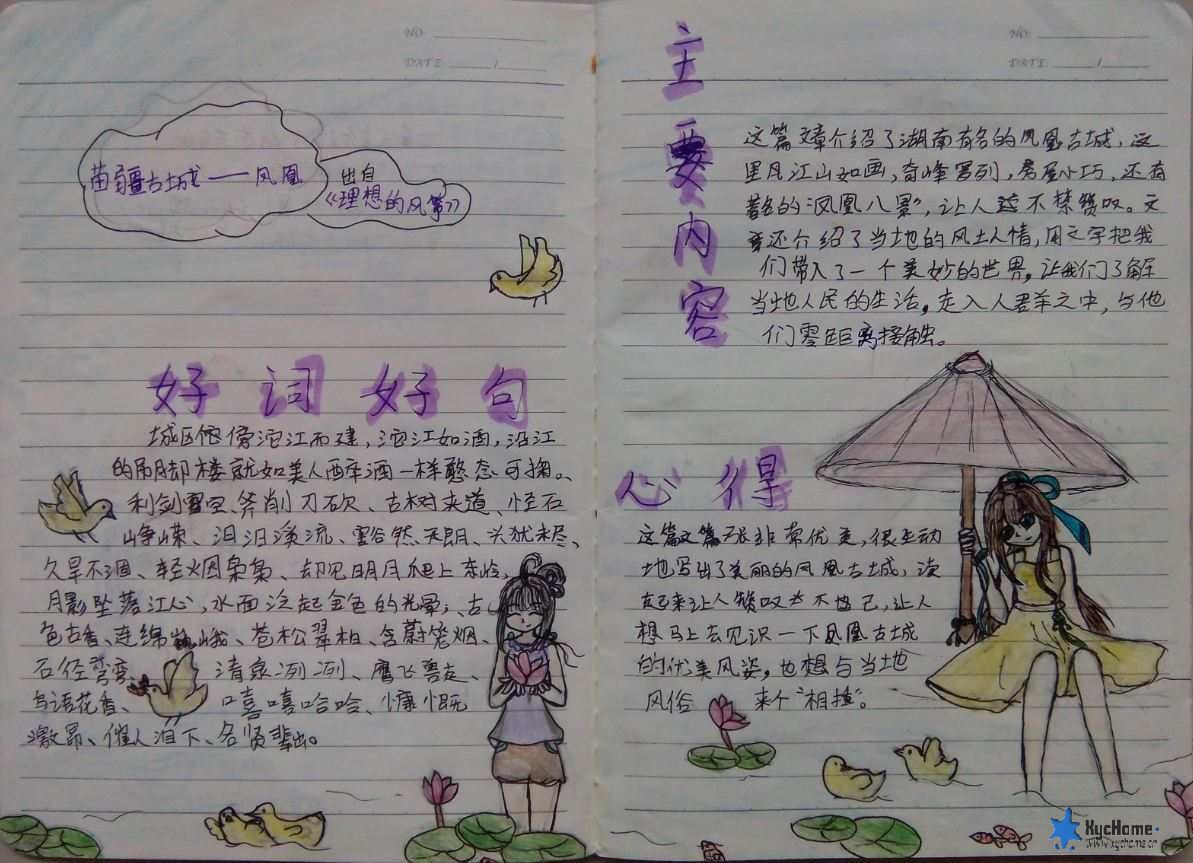 NO.
DATE      /
苗疆古城——凤凰
出自
《理想的风筝》
好词好句
城区傍沱江而建,沱江如酒,沿江
的吊脚楼就如美人醉酒一样憨态可掬。
利剑 空、斧削刀砍、古树夹道、怪石
峥嵘、汩汩溪流、豁然天朗、兴犹未尽、
久旱不涸、轻烟袅袅、却见明月爬上东岭,
月影坠落江心,水面泛起金色的光晕;古
色古香、连绵 峨、苍松翠柏、含蔚笼烟、
石径弯弯、清泉冽冽、鹰飞兽走、
鸟语花香、嘻嘻哈哈、慷慨
激昂、催人泪下、名贤辈出。
NO.
DATE      /
主要内容
这篇文章介绍了湖南有名的凤凰古城,这
里风江山如画,奇峰罗列,房屋小巧,还有
著名的“凤凰八景”,让人 不禁赞叹。文
章还介绍了当地的风土人情,用文字把我
们带入了一个美妙的世界,让我们了解
当地人民的生活,走入人群之中,与他
们零距离接触。
心得
这篇文 非常优美,很生动
地写出了美丽的凤凰古城,读
起来让人赞叹 不 己,让人
想马上去见识一下凤凰古城
的优美风姿,也想与当地
风俗来个“相撞”。
XycHome
www.xychome.cn